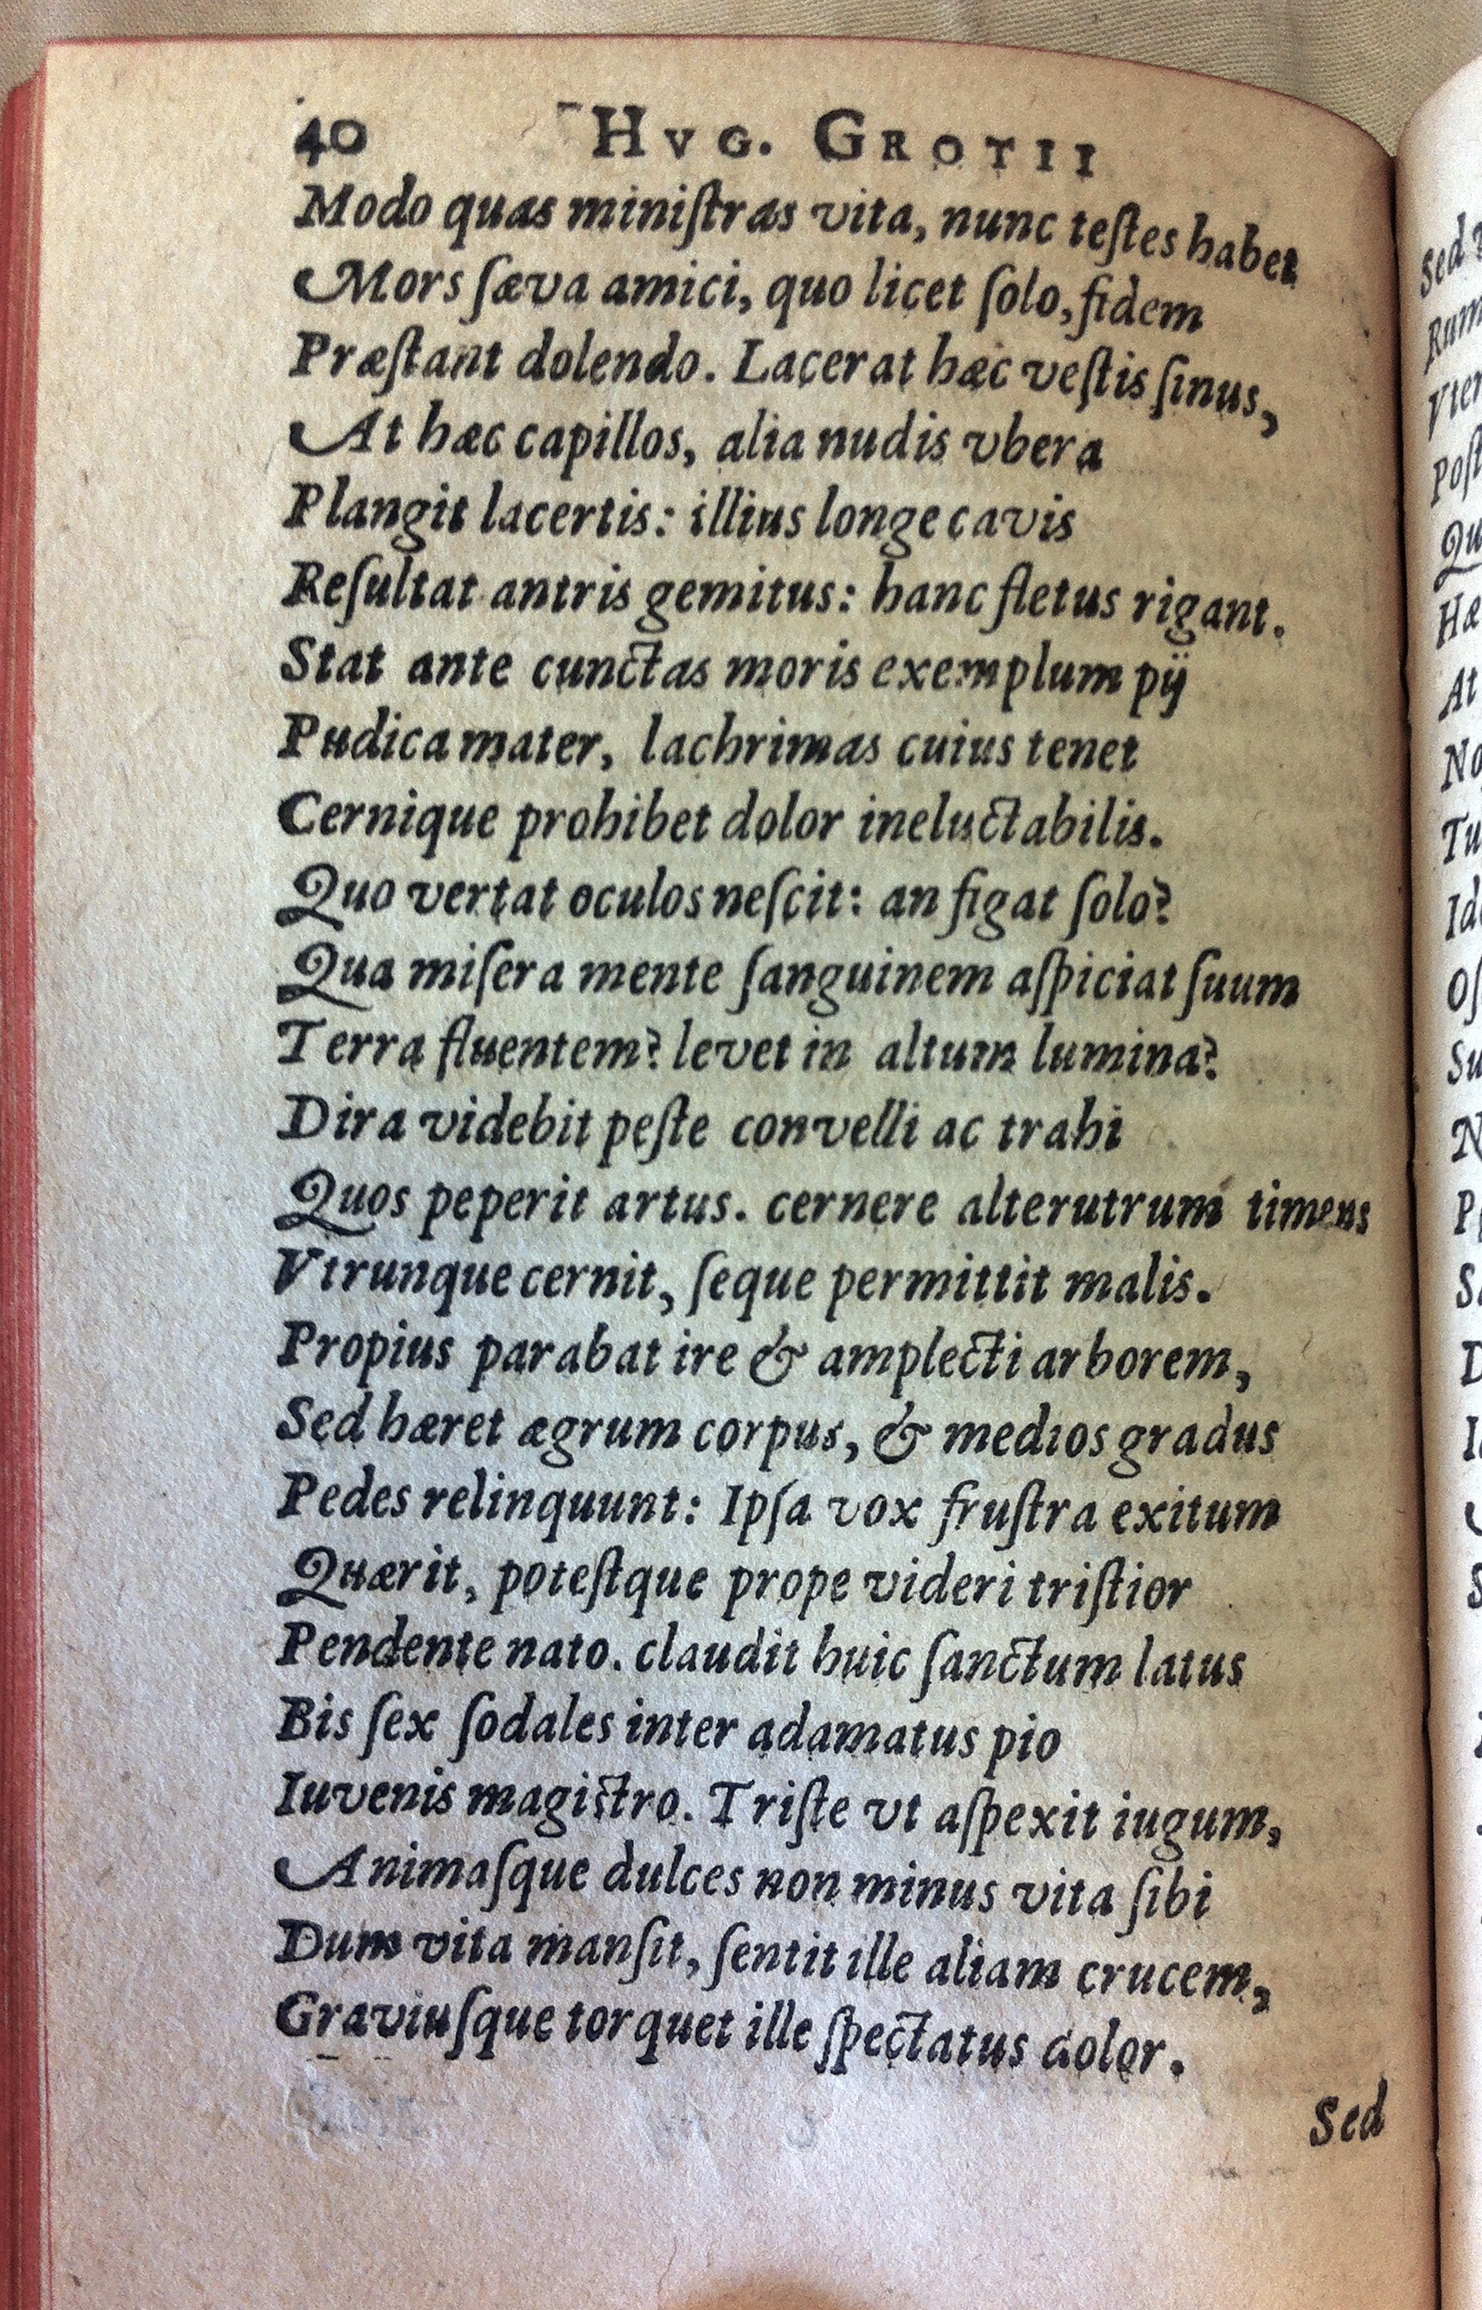 40 HVG. GROTII
Modo quas miniſtras vita, nunc teſtes habet
Mors ſæva amici, quo licet ſolo, fidem
Præſtant dolendo. Lacerat hæc veſtis ſinus,
At hæc capillos, alia nudis vbera
Plangit lacertis: illius longe cavis
Reſultat antris gemitus: hanc fletus rigant.
Stat ante cunctas moris exemplum pij
Pudica mater, lachrimas cuius tenet
Cernique prohibet dolor ineluctabilis.
Quo vertat oculos neſcit: an figat ſolo?
Qua miſera mente ſanguinem aſpiciat ſuum
Terra fluentem? levet in altum lumina?
Dira videbit peſte convelli ac trahi
Quos peperit artus. cernere alterutrum timens
Vtrunque cernit, ſeque permittit malis.
Propius parabat ire & amplecti arborem,
Sed hæret ægrum corpus, & medios gradus
Pedes relinquunt: Ipſa vox fruſtra exitum
Quærit, poteſtque prope videri triſtior
Pendente nato. claudit huic ſanctum latus
Bis ſex ſodales inter adamatus pio
Iuvenis magiſtro. Triſte vt aſpexit iugum,
Animaſque dulces non minus vita ſibi
Dum vita manſit, ſentit ille aliam crucem,
Graviuſque torquet ille ſpectatus dolor.
Sed